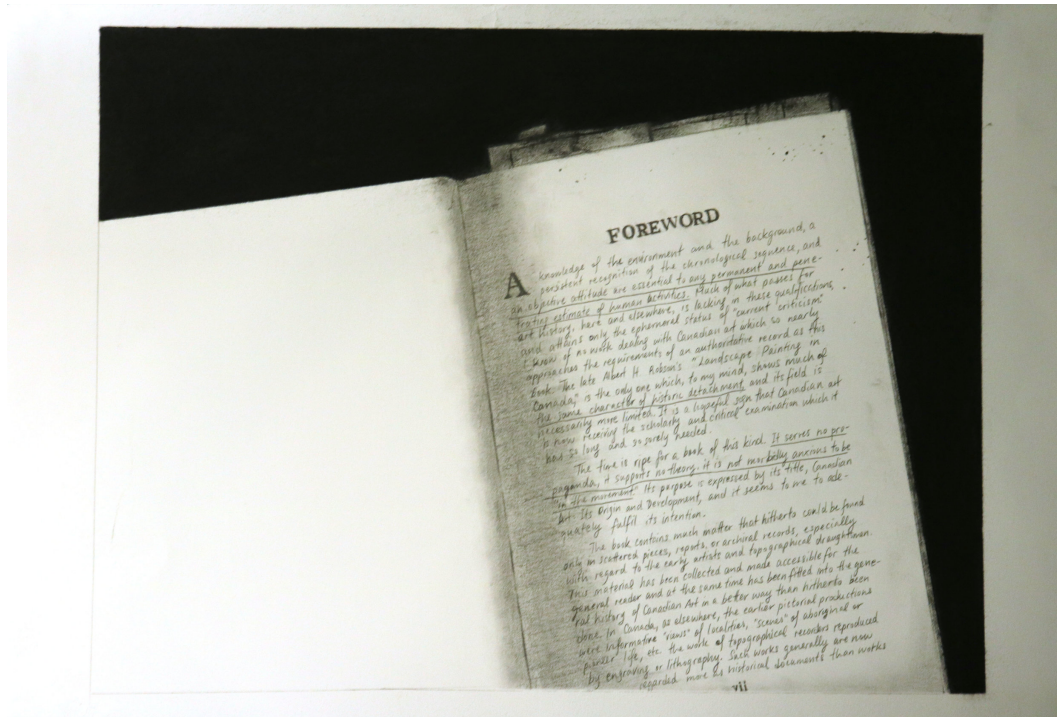 FOREWORD
A knowledge of the environment and the background, a
persistent recognition of the chronological sequence, and
an objective attitude are essential to any permanent and pene-
trative estimate of human activities. Much of what passes for
art history, here and elsewhere, is lacking in these qualifications,
and attains only the ephemeral status of "current criticism".
I know of no work dealing with Canadian art which so nearly
approaches the requirements of an authoritative record as this
book. The late Albert H. Robson's "Landscape Painting in
Canada," is the only one which, to my mind, shows much of
the same character of historic detachment and its field is
necessarily more limited. It is a hopeful sign that Canadian art
is now receiving the scholarly and critical examination which it
has so long and so sorely needed.
The time is ripe for a book of this kind. It serves no pro-
paganda, it supports no theory. it is not morbidly anxious to be
"in the movement". Its purpose is expressed by its title, Canadian
Art Its Origin and Development, and it seems to me to ade-
quately fulfil its intention.
The book contains much matter that hitherto could be found
only in scattered pieces, reports, or archival records, especially
with regard to the early artists and topographical draughtsmen.
This material has been collected and made accessible for the
general reader and at the same time has been fitted into the gene-
ral history of Canadian Art in a better way than hitherto been
done. In Canada, as elsewhere, the earlier pictorial productions
were informative "views" of localities, "scenes" of aboriginal or
pioneer life, etc. the work of topographical recorders reproduced
by engraving or lithography. Such works generally are now
regarded more as historical documents than works
vii